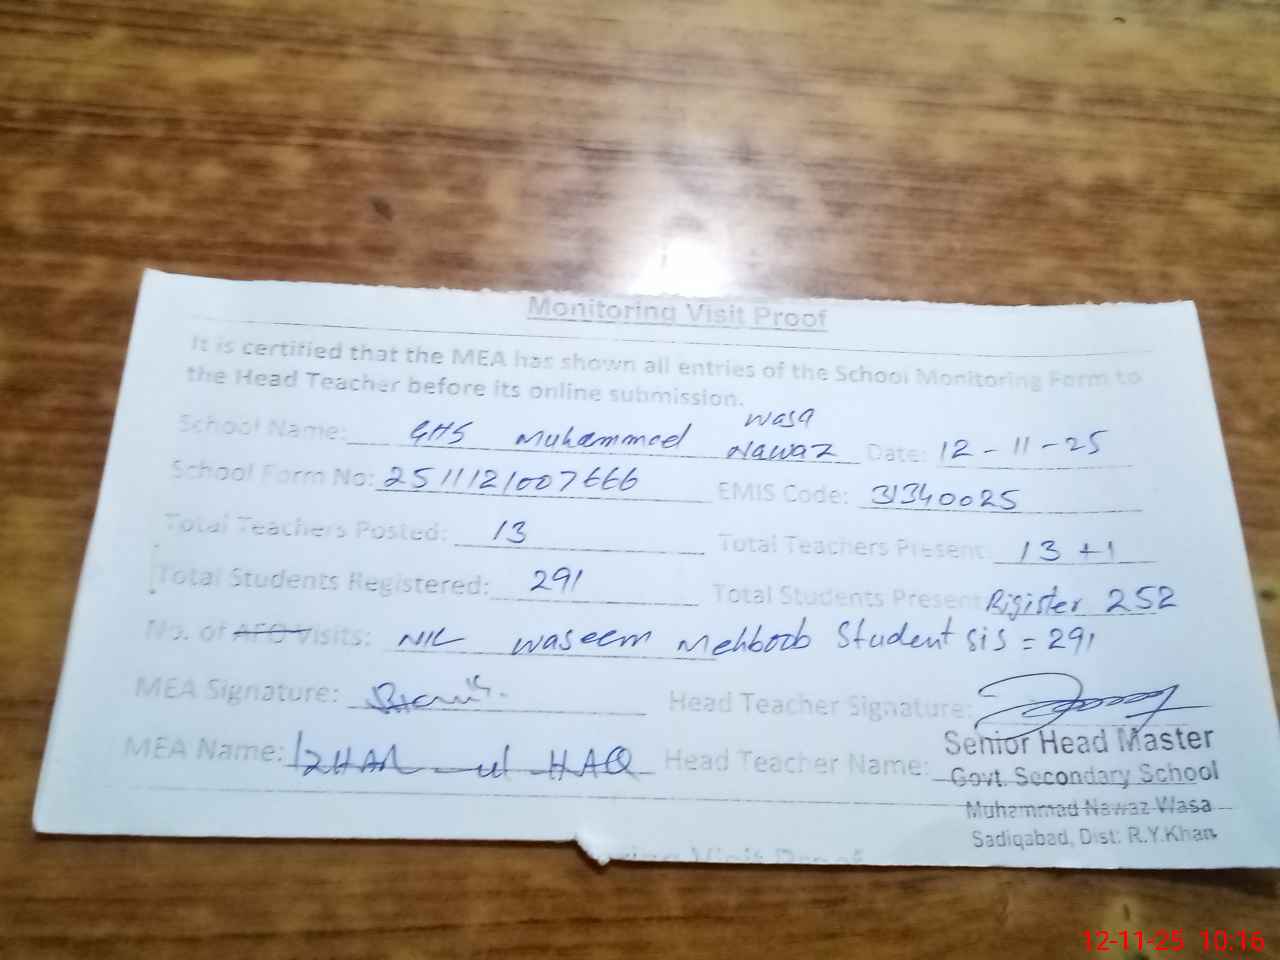 Monitoring Visit Proof
It is certified that the MEA has shown all entries of the School Monitoring Form to
the Head Teacher before its online submission.
School Name: GHS Muhammad Nawaz Wasa Date: 12-11-25
School Form No: 2511121007666 EMIS Code: 31340025
Total Teachers Posted: 13 Total Teachers Present: 13 +1
Total Students Registered: 291 Total Students Present Rigister 252
No. of AFO Visits: NIL waseem Mehboob Student sis = 291
MEA Signature: Head Teacher Signature:
MEA Name: IZHAR ul HAQ Head Teacher Name:
Senior Head Master
Govt. Secondary School
Muhammad Nawaz Wasa
Sadiqabad, Dist: R.Y.Khan
12-11-25 10:16